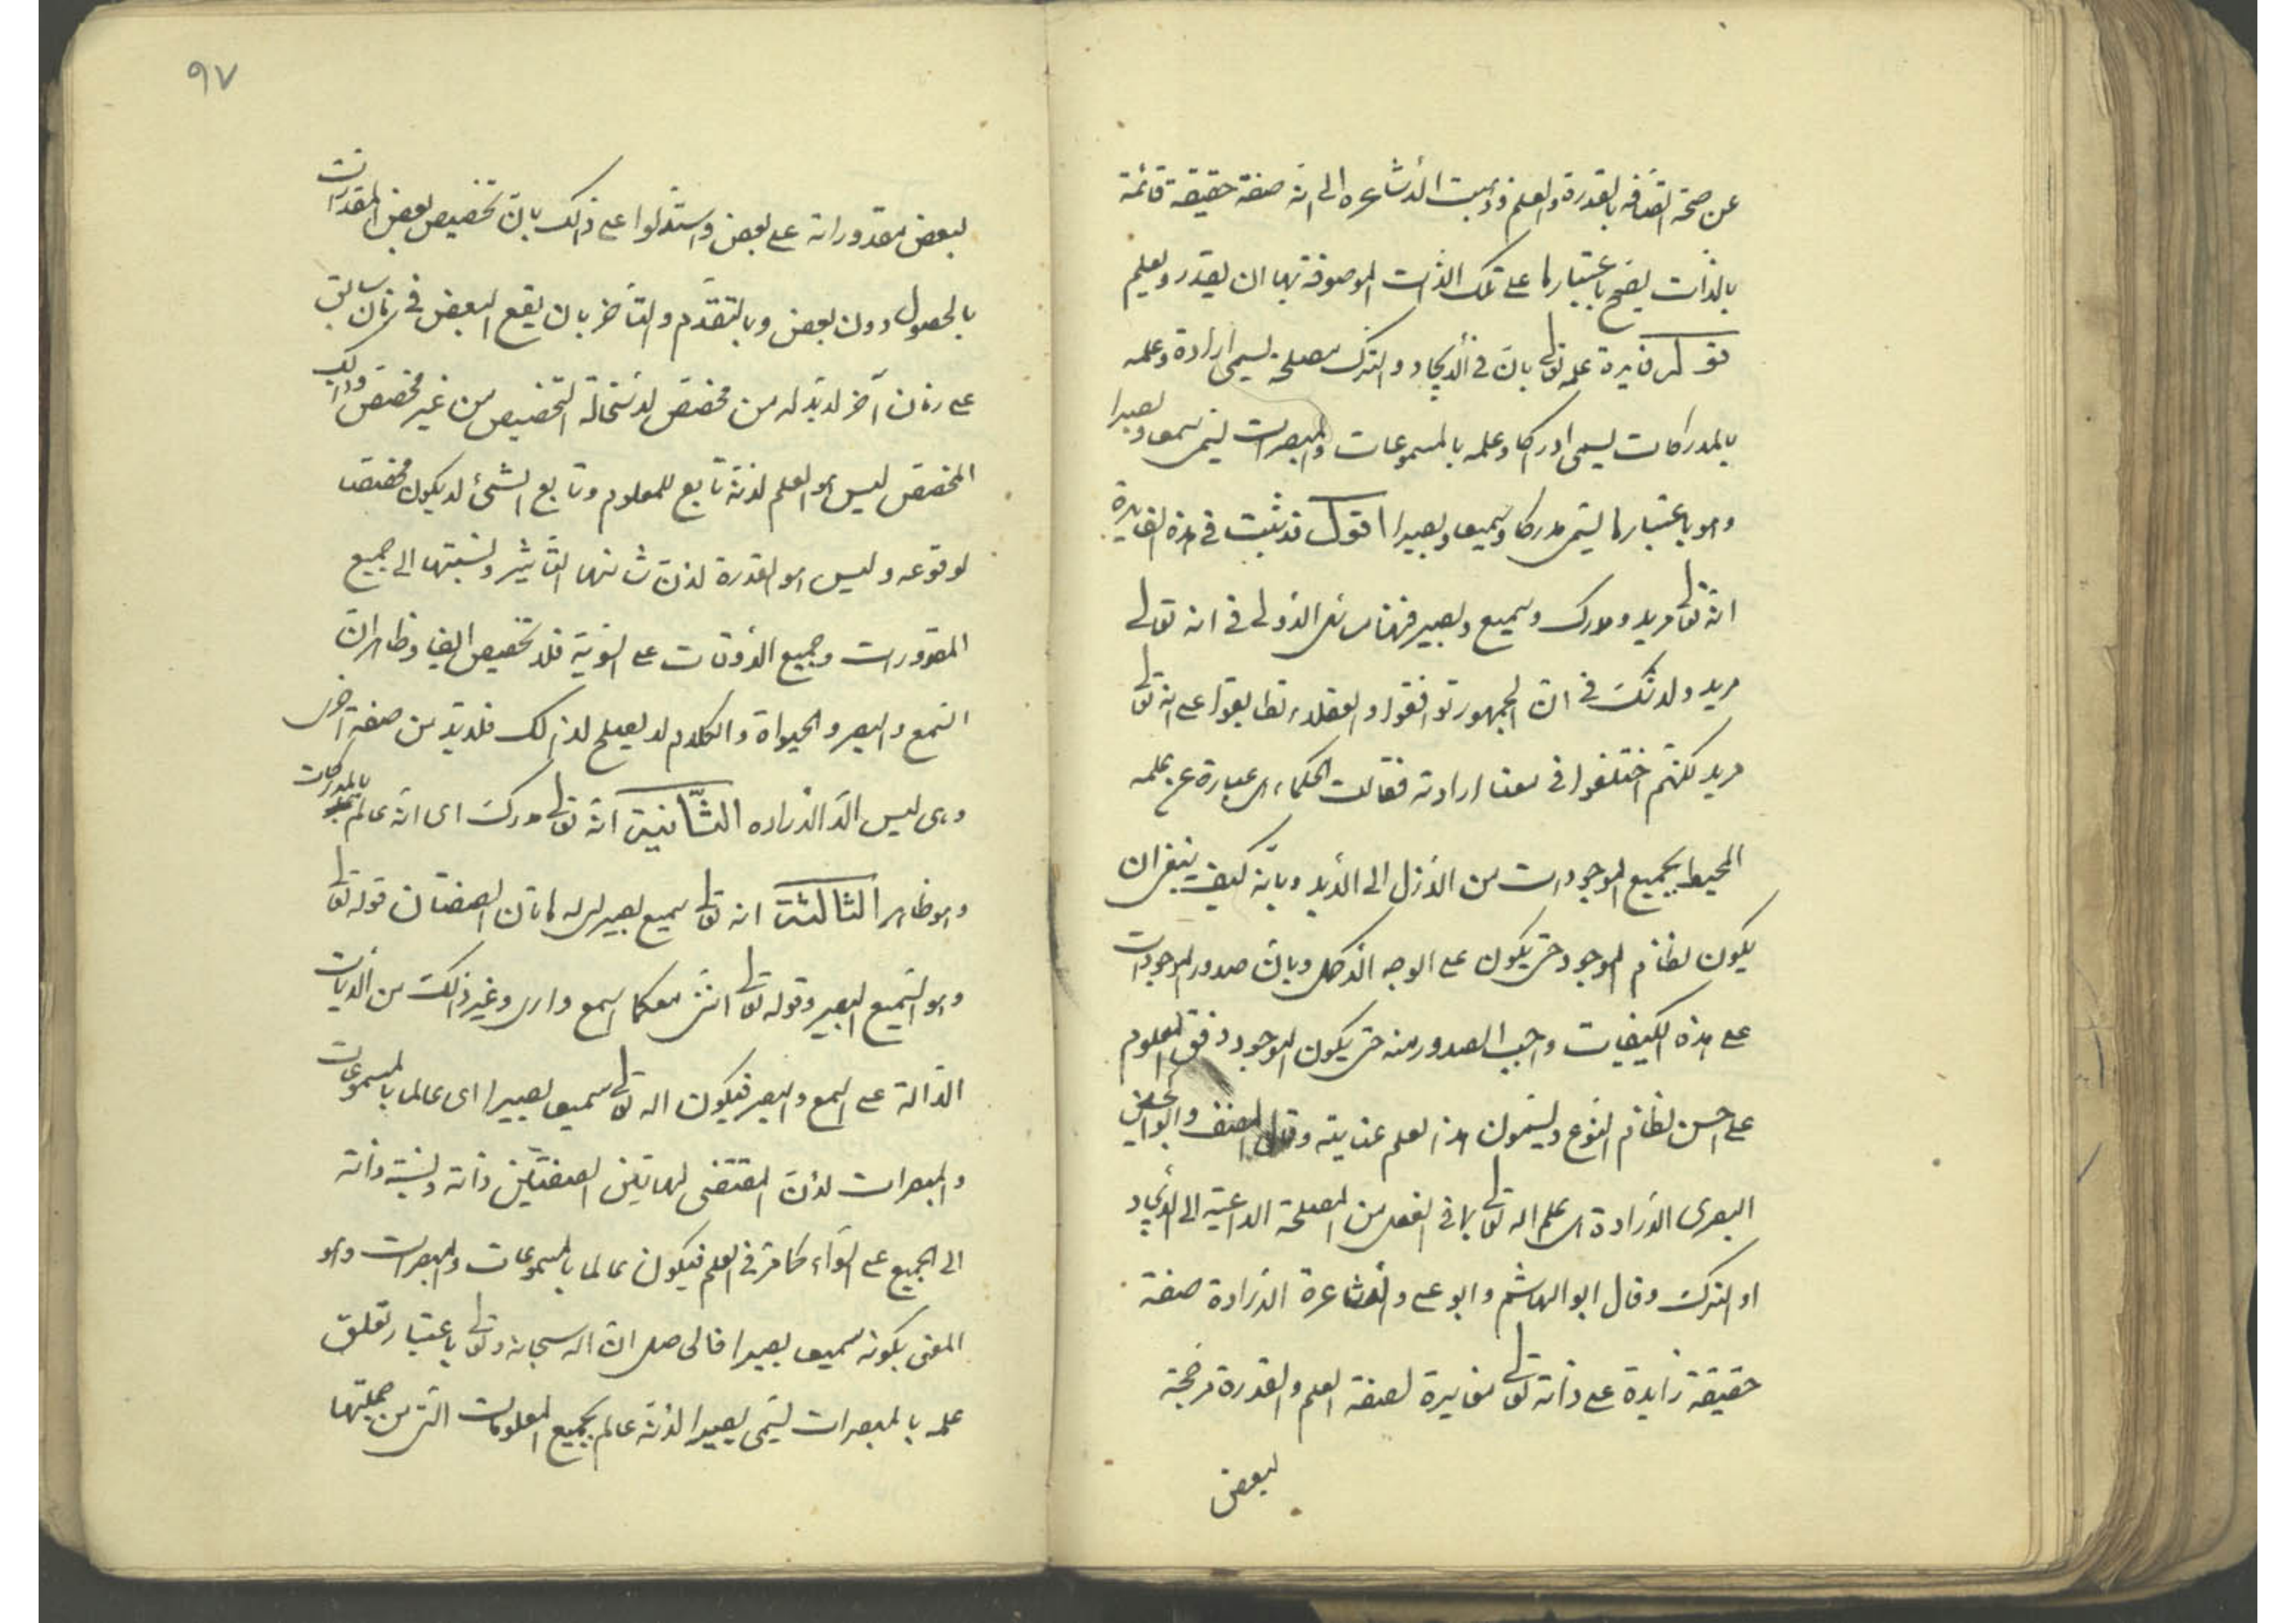 عن صحة اتصافه بالقدرة والعلم وذهبت الأشاعره الى انه صفة حقيقة قائمة
بالذات يصح باعتبارها على تلك الذات الموصوفة بها ان يقدر ويعلم
علمه تعالى بان في الأيجاد والترك مصلحة يسمى ارادة وعلمه
بالمدراكات يسمى ادراكا وعلمه بالمسموعات والمبصرات يسمى سمعا وبصيرا
وهو باعتبارها يسمى مدركا وسميعا وبصيرا اقول قد ثبت في هذه الفايدة
انه تعالى مريد ومدرك وسميع وبصير فهنا مسائل الأولى في انه تعالى
مريد ولا شك في ان الجمهور توافقوا والعقلاء تطابقوا على انه تعالى
مريد لكنهم اختلفوا في معنا ارادته فقالت الحكماء هي عبارة عن علمه
المحيط بجميع الموجودات من الأزل الى الأبد وبانه كيف ينبغي ان
يكون نظام الموجود حتى يكون على الوجه الأكمل وبان صدور الموجودات
على هذه الكيفيات واجب الصدور منه حتى يكون الموجود وفق المعلوم
على احسن نظام النوع ويسمون هذا العلم عناية وقال المصنف وابو الحسين
البصرى الأرادة هى علم اله تعالى بما في الفعل من المصلحة الداعية الى الأيجاد
او الترك وقال ابو الهاشم وابو على والأشاعرة الأرادة صفة
حقيقة زايدة على ذاته تعالى مغايرة لصفة العلم والقدرة مرجحة
لبعض
٩٧
لبعض مقدوراته على بعض واستدلوا على ذالك بان تخصيص بعض المقدرات
بالحصول دون بعض وبالتقدم والتأخر بان يقع البعض في زمان سابق
على زمان آخر لابد له من مخصص لاستحالة التخصيص من غير مخصص وذالك
المخصص ليس هو العلم لانه تابع للمعلوم وتابع الشئ لا يكون مخصصا
لوقوعه وليس هو القدرة لان شانها التأثير ونسبتها الى جميع
المقدورات وجميع الأوقات على السوية فلا تخصيص ايضا وظاهر ان
السمع والبصر والحيواة والكلام لا يصلح لذالك فلا بد من صفة اخرى
وهى ليس الا الأراده الثانية انه تعالى مدرك اى انه عالم بالمدركات
وهو ظاهر الثالثة انه تعالى سميع بصير له هاتان الصفتان قوله تعالى
وهو السميع البصير وقوله تعالى اننى معكما اسمع وارى وغير ذالك من الأيات
الدالة على السمع والبصر فيكون اله تعالى سميعا بصيرا اى عالما بالمسموعات
والمبصرات لأن المقتضى لهاتين الصفتين ذاته ونسبة ذاته
الى الجميع على السواء كما مر في العلم فيكون عالما بالمسموعات والمبصرات وهو
المعنى بكونه سميعا بصيرا فالحاصل ان اله سبحانه وتعالى باعتبار تعلق
علمه بالمبصرات يسمى بصيرا لأنه عالم بجميع المعلومات التى من جملتها